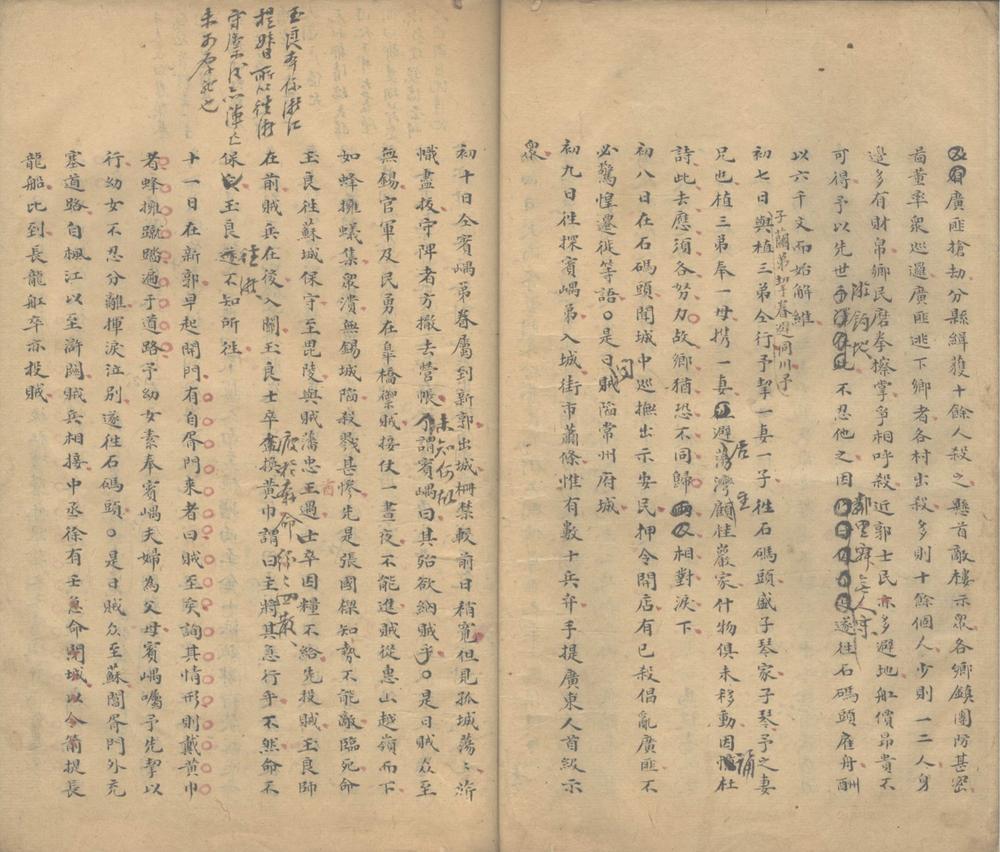 廣匪搶劫分縣緝獲十餘人殺之懸首敵樓示衆各鄉鎮團防甚密
董率衆巡邏廣匪逃下鄉者各村出殺多則十餘個人少則一二人身
邊多有財帛鄉民磨拳擦掌爭相呼殺近郭士民亦多避地船價昂貴不
可得予以先世此不忍他之因鄰里寂無人守遂往石碼頭雇舟酬
以六千文而始解維
子蘭弟挈眷避同川予
初七日與植三弟仝行予挈一妻一子往石碼頭盛子琴家子琴予之妻
兄也植三弟奉一母携一妻避蕩灣顧桂巖家什物俱未移動因誦杜
詩此去應須各努力故鄉猶恐不同歸相對淚下
初八日在石碼頭聞城中巡撫出示安民押令開店有已殺倡亂廣匪不
必驚惶遷徙等語○是日聞賊陷常州府城
初九日往探賓嵎弟入城街市蕭條惟有數十兵弁手提廣東人首級示
衆
初十日仝賓嵎弟眷屬到新郭出城柵禁較前日稍寬但見孤城蕩蕩旂
幟盡拔守陴者方撤去營帳未知何故謂賓嵎曰其殆欲納賊乎○是日賊众至
無錫官軍及民勇在皋橋禦賊接仗一晝夜不能進賊從惠山越嶺而下
如蜂擁蟻集衆潰無錫城陷殺戮甚慘先是張國樑知勢不能敵臨死命
玉良往蘇城保守至毘陵與賊酋藩忠王遇士卒因糧不給先投賊玉良師
在前賊兵在後入關玉良士卒盡換黃巾謂曰主將其急行乎不然命不
保玉良遂往浙不知所往
玉良本係浙江
提督
未知
十一日在新郭早起開門有自胥門來者曰賊至矣詢其情形則戴黃巾
者蜂擁躧踏遍于道路予幼女素奉賓嵎夫婦為父母賓嵎囑予先挈以
行幼女不忍分離揮淚泣別遂往石碼頭○是日賊众至蘇閶胥門外充
塞道路自楓江以至滸關賊兵相接中丞徐有壬急命閉城以令箭提長
龍船比到長龍船卒亦投賊